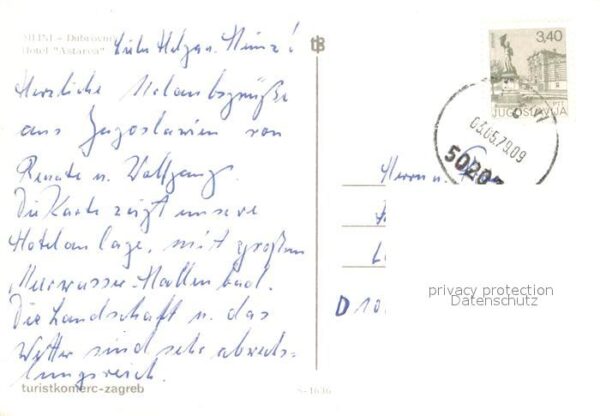 MLINI - Dubrovnik
Hotel "Astarea"
Liebe Helga u. Heinz!
Herzliche Urlaubsgrüße
aus Jugoslawien von
Renate u. Wolfgang.
Die Karte zeigt unsere
Hotelanlage, mit großem
Meerwasser-Hallenbad.
Die Landschaft u. das
Wetter sind sehr abwechs-
lungsreich.
turistkomerc-zagreb
S-1636
tB
3,40
PTT
JUGOSLAVIJA
03.05.79.09
50207
Herrn u.
D 10
privacy protection
Datenschutz